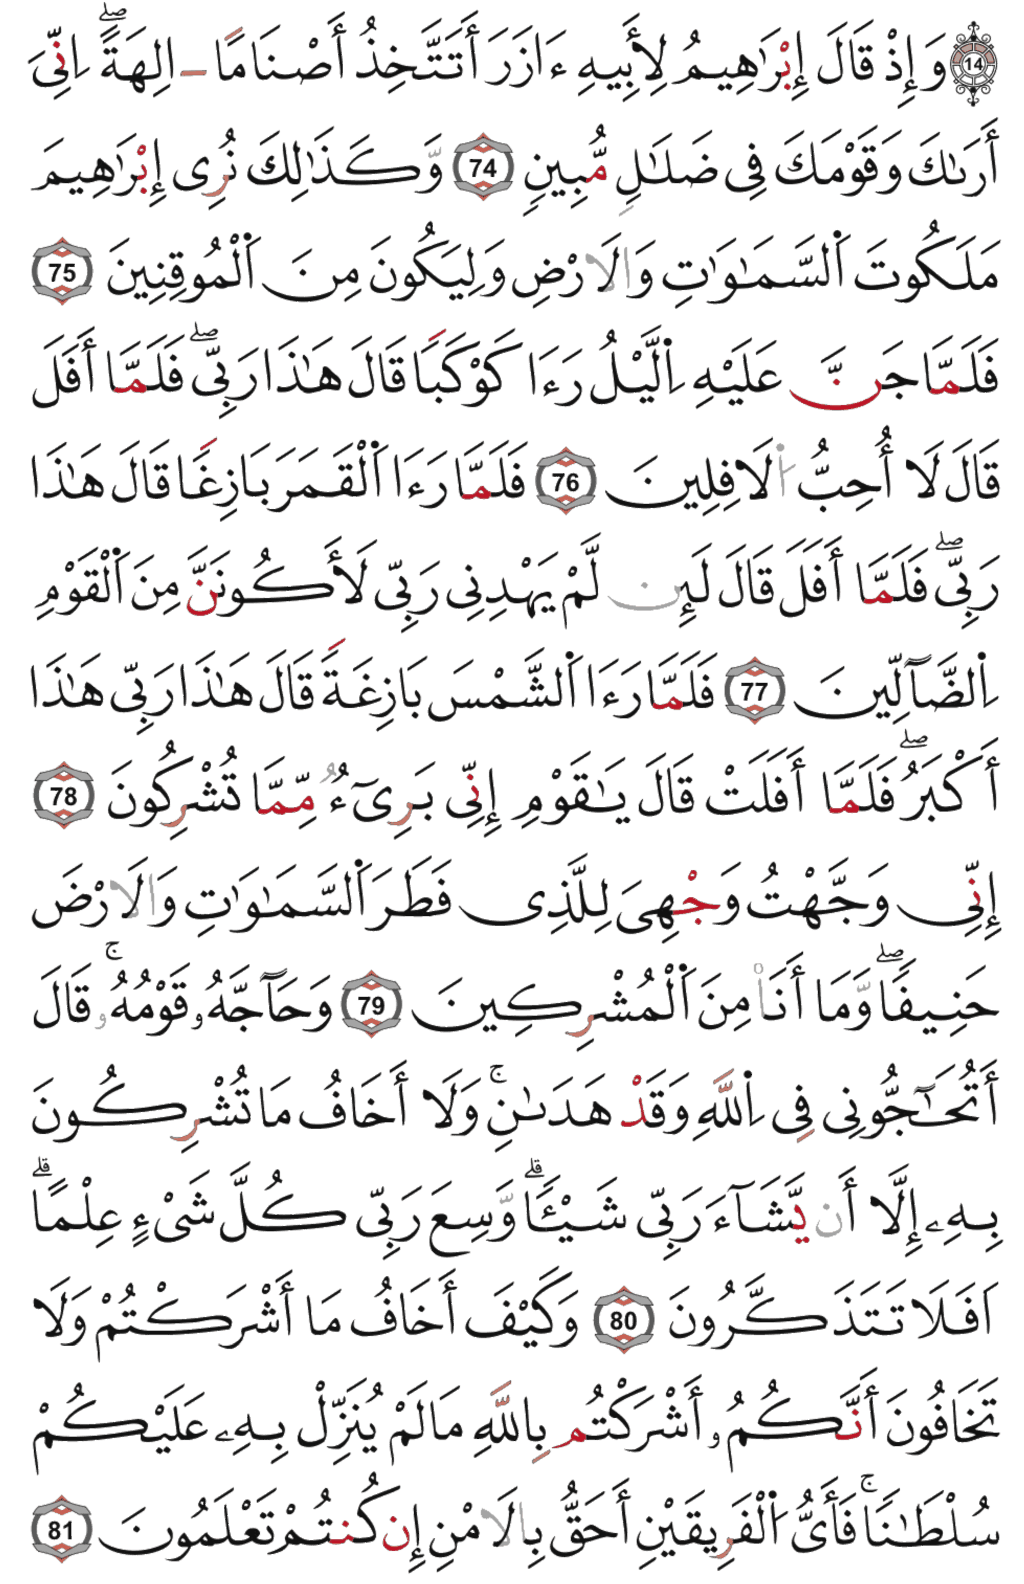 14 وَإِذْ قَالَ إِبْرَٰهِيمُ لِأَبِيهِ ءَازَرَ أَتَتَّخِذُ أَصْنَامًا ـ الِهَةًۖ اِنِّىَ
أَرَىٰكَ وَقَوْمَكَ فِى ضَلَٰلٍ مُّبِينٍ 74 وَكَذَٰلِكَ نُرِى إِبْرَٰهِيمَ
مَلَكُوتَ اَ۬لسَّمَٰوَٰتِ وَالَارْضِ وَلِيَكُونَ مِنَ اَ۬لْمُوقِنِينَ 75
فَلَمَّا جَنَّ عَلَيْهِ اِ۬لَّيْلُ رَءَا كَوْكَبًا قَالَ هَٰذَا رَبِّىۖ فَلَمَّا أَفَلَ
قَالَ لَا أُحِبُّ اُ۬لَافِلِينَ 76 فَلَمَّا رَءَا اَ۬لْقَمَرَ بَازِغًا قَالَ هَٰذَا
رَبِّىۖ فَلَمَّا أَفَلَ قَالَ لَئِن لَّمْ يَهْدِنِى رَبِّى لَأَكُونَنَّ مِنَ اَ۬لْقَوْمِ
اِ۬لضَّآلِّينَ 77 فَلَمَّا رَءَا اَ۬لشَّمْسَ بَازِغَةً قَالَ هَٰذَا رَبِّى هَٰذَا
أَكْبَرُۖ فَلَمَّا أَفَلَتْ قَالَ يَٰقَوْمِ إِنِّى بَرِىٓءٌ مِّمَّا تُشْرِكُونَ 78
إِنِّى وَجَّهْتُ وَجْهِىَ لِلَّذِى فَطَرَ اَ۬لسَّمَٰوَٰتِ وَالَارْضَ
حَنِيفًاۖ وَّمَا أَنَا۠ مِنَ اَ۬لْمُشْرِكِينَ 79 وَحَآجَّهُۥ قَوْمُهُۥۚ قَالَ
أَتُحَٰٓجُّونِى فِى اِ۬للَّهِ وَقَدْ هَدَىٰنِۚ وَلَا أَخَافُ مَا تُشْرِكُونَ
بِهِۦ إِلَّا أَن يَّشَآءَ رَبِّى شَيْـًٔاۗ وَّسِعَ رَبِّى كُلَّ شَىْءٍ عِلْمًاۗ
اَفَلَا تَتَذَكَّرُونَ 80 وَكَيْفَ أَخَافُ مَا أَشْرَكْتُمْ وَلَا
تَخَافُونَ أَنَّكُمُۥ أَشْرَكْتُم بِاللَّهِ مَا لَمْ يُنَزِّلْ بِهِۦ عَلَيْكُمْ
سُلْطَٰنًاۚ فَأَىُّ اَ۬لْفَرِيقَيْنِ أَحَقُّ بِالَامْنِ إِن كُنتُمْ تَعْلَمُونَ 81